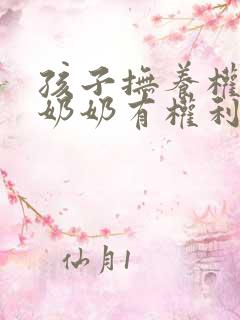 孩子撫養權
奶奶有權利
仙月1